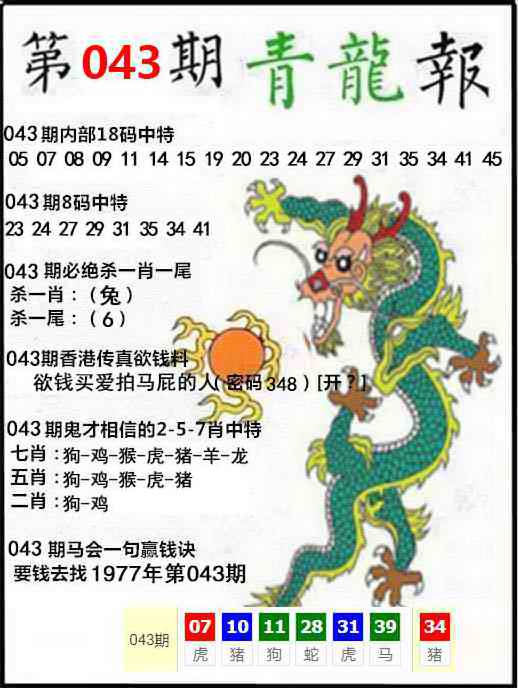 第043期青龍報
043期内部18码中特
05 07 08 09 11 14 15 19 20 23 24 27 29 31 35 34 41 45
043期8码中特
23 24 27 29 31 35 34 41
043 期必绝杀一肖一尾
杀一肖：（兔）
杀一尾：（6）
043期香港传真欲钱料
欲钱买爱拍马屁的人(密码348）[开？]
043期鬼才相信的2-5-7肖中特
七肖：狗-鸡-猴-虎-猪-羊-龙
五肖：狗-鸡-猴-虎-猪
二肖：狗-鸡
043 期马会一句赢钱诀
要钱去找1977年第043期
043期 07 10 11 28 31 39 34
虎 猪 狗 蛇 虎 马 猪